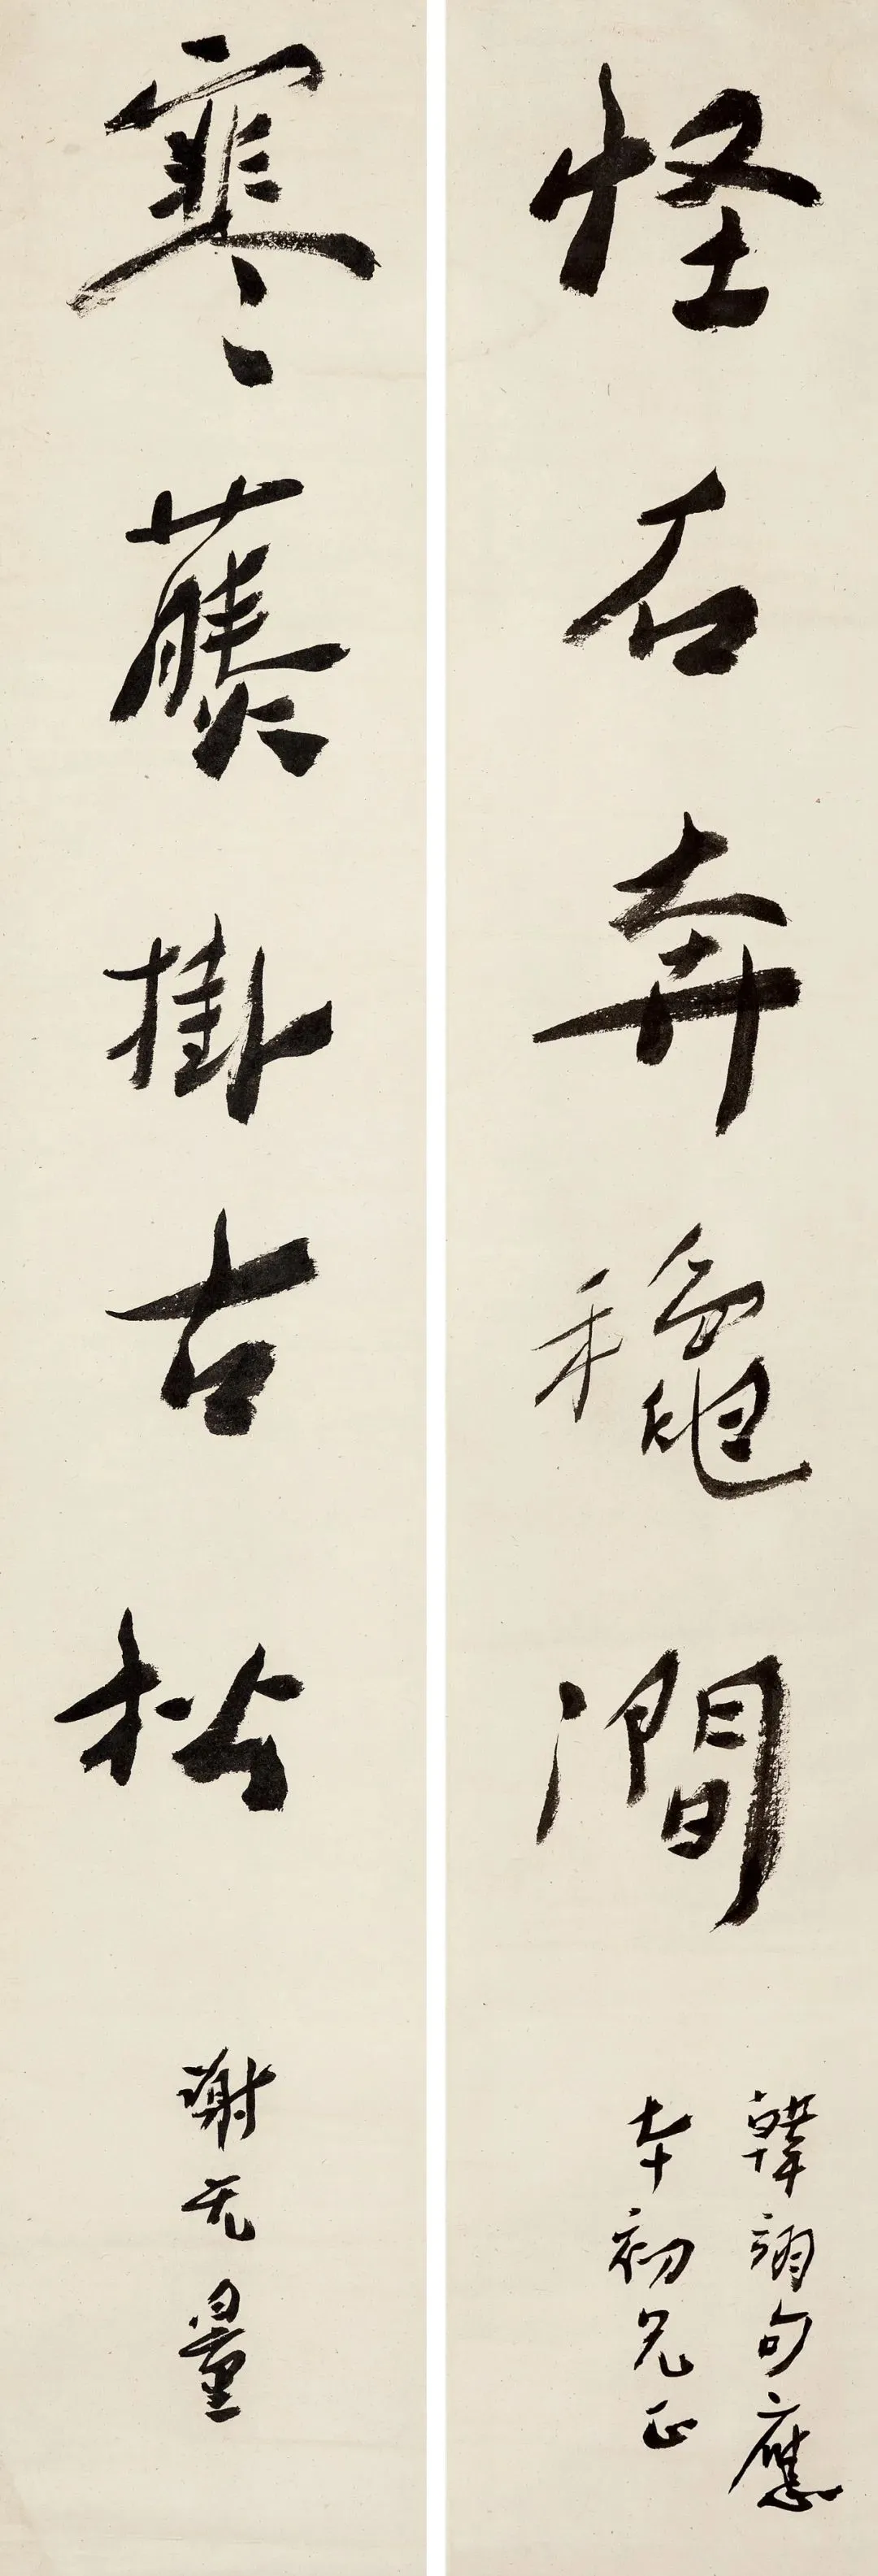 怪石奔穐澗
韓翃句應
本初兄正
寒藤掛古松
謝无量